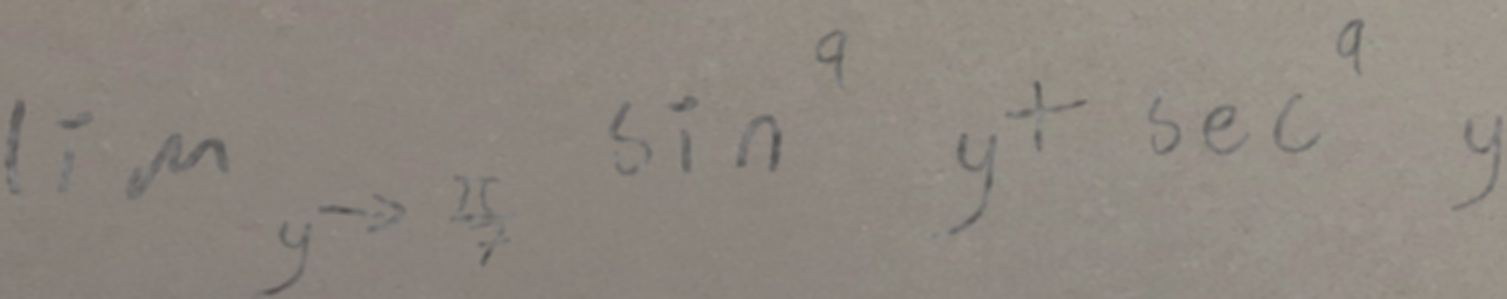 lim y→ sin^9 y + sec^9 y